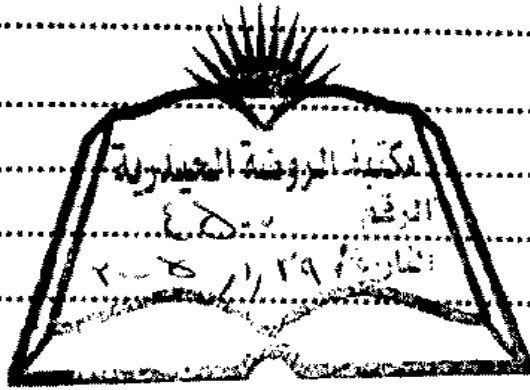 مكتبة الروضة الحيدرية
الرقم
التاريخ ٢٩/١/٢٠٠٥